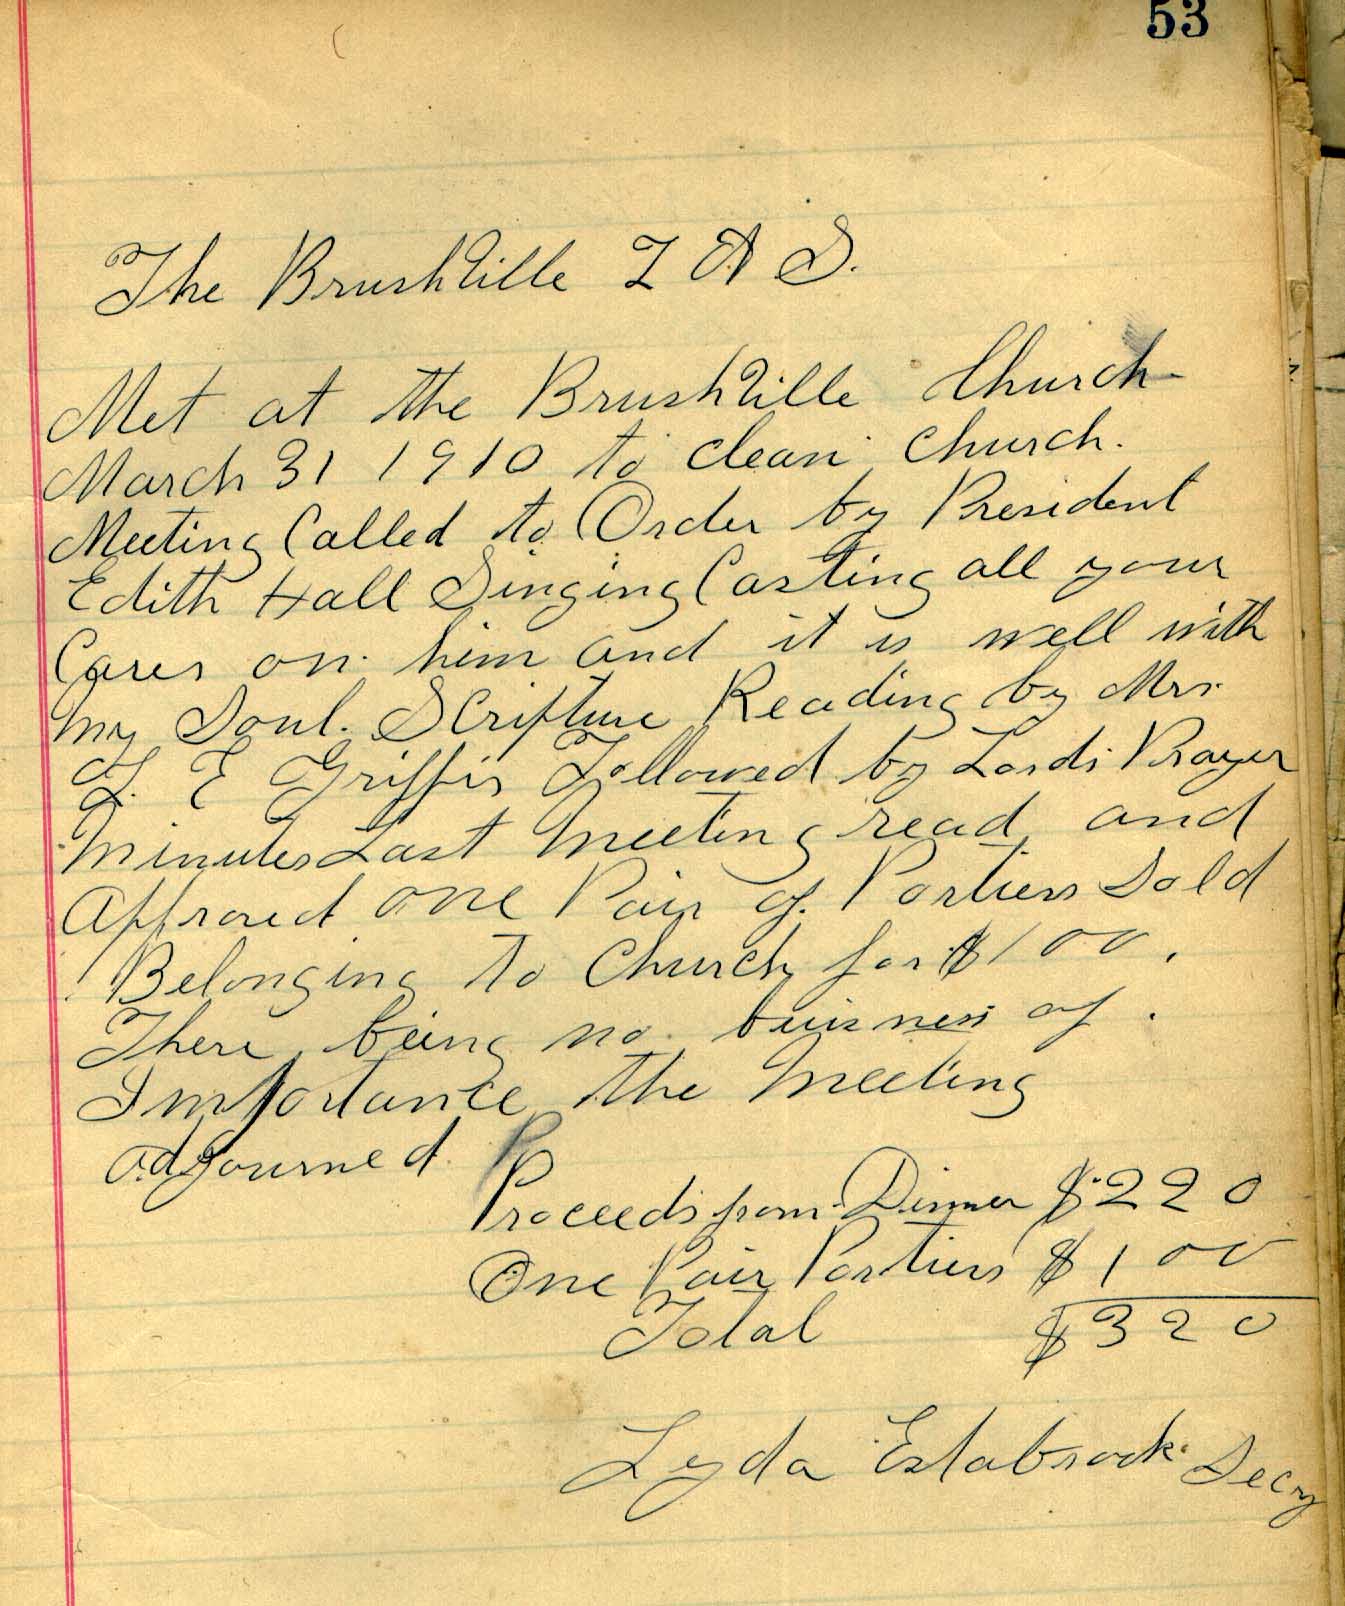 53
The Brushville L A S.
Met at the Brushville Church
March 31 1910 to clean church.
Meeting Called to Order by President
Edith Hall Singing Casting all your
Cares on him and it is well with
my Soul. Scripture Reading by Mrs
E Griffis Followed by Lords Prayer
Minutes Last Meeting read and
Approved one Pair of Portiers Sold
Belonging to Church for $1 00.
There being no buisness of
Importance the Meeting
adjourned.
Proceeds from Dinner $2 20
One Pair Portiers $1 00
Total $3 20
Lyda Estabrook Secy